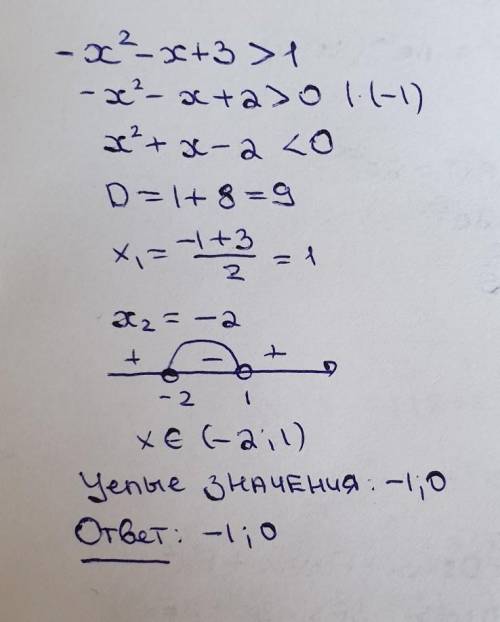 -x² - x + 3 > 1
-x² - x + 2 > 0 | · (-1)
x² + x - 2 < 0
D = 1 + 8 = 9
x₁ = (-1 + 3)/2 = 1
x₂ = -2
+ - +
-2 1
x ∈ (-2; 1)
Целые значения: -1; 0
Ответ: -1; 0